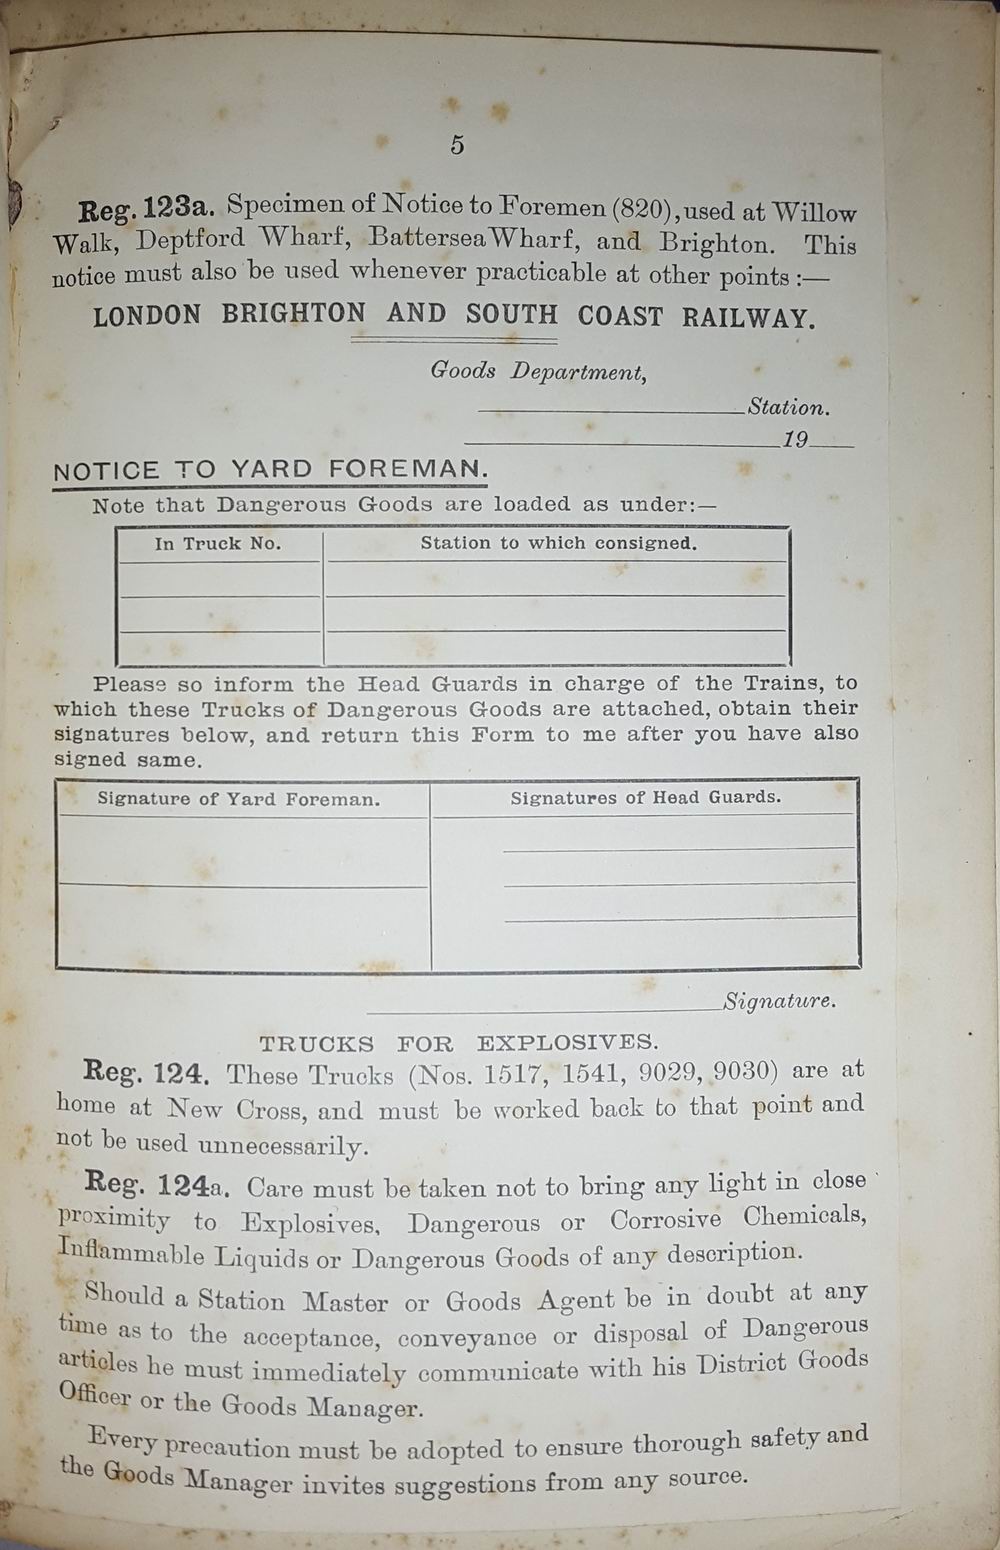 5
Reg. 123a. Specimen of Notice to Foremen (820), used at Willow
Walk, Deptford Wharf, Battersea Wharf, and Brighton. This
notice must also be used whenever practicable at other points :—
LONDON BRIGHTON AND SOUTH COAST RAILWAY.
Goods Department,
Station.
19
NOTICE TO YARD FOREMAN.
Note that Dangerous Goods are loaded as under:—
In Truck No. Station to which consigned.
Please so inform the Head Guards in charge of the Trains, to
which these Trucks of Dangerous Goods are attached, obtain their
signatures below, and return this Form to me after you have also
signed same.
Signature of Yard Foreman. Signatures of Head Guards.
Signature.
TRUCKS FOR EXPLOSIVES.
Reg. 124. These Trucks (Nos. 1517, 1541, 9029, 9030) are at
home at New Cross, and must be worked back to that point and
not be used unnecessarily.
Reg. 124a. Care must be taken not to bring any light in close
proximity to Explosives, Dangerous or Corrosive Chemicals,
Inflammable Liquids or Dangerous Goods of any description.
Should a Station Master or Goods Agent be in doubt at any
time as to the acceptance, conveyance or disposal of Dangerous
articles he must immediately communicate with his District Goods
Officer or the Goods Manager.
Every precaution must be adopted to ensure thorough safety and
the Goods Manager invites suggestions from any source.